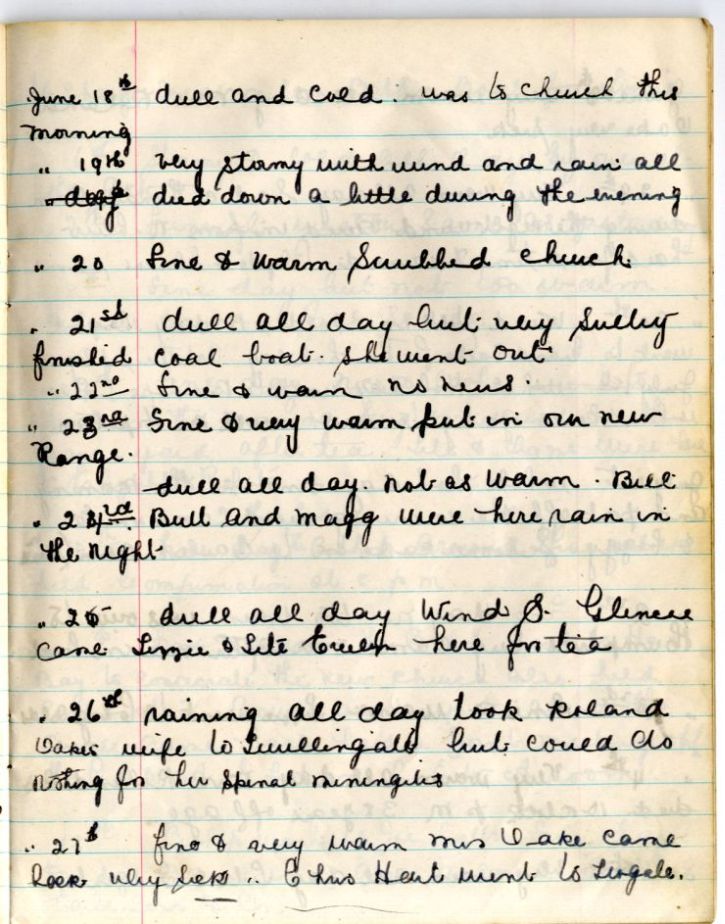 June 18th dull and cold. was to church this
morning
" 19th very stormy with wind and rain all
died down a little during the evening
" 20 fine & warm Scrubbed church
" 21st dull all day but very sultry
finished coal boat. she went out
" 22nd fine & warm no news.
" 23rd fine & very warm put in our new
Range.
dull all day. not as warm. Bill
" 24rd. Bull and Magg were here rain in
the night
" 25 dull all day Wind S. Glencoe
came Lizzie & here for tea
" 26th raining all day took Roland
Oakes wife to Twillingate but could do
nothing for her Spinal miningitis
" 27th fine & very warm mrs Oake came
back very sick .. Chris Hart went to